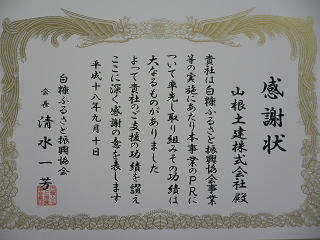 感謝状
山根土建株式会社 殿
貴社は白糠ふるさと振興協会事業
等の実施にあたり本事業のPRに
ついて率先し取り組みその功績は
大なるものがありました
よって貴社のご支援の功績を讃え
ここに深く感謝の意を表します
平成十八年九月十日
白糠ふるさと振興協会
会長 清水一芳